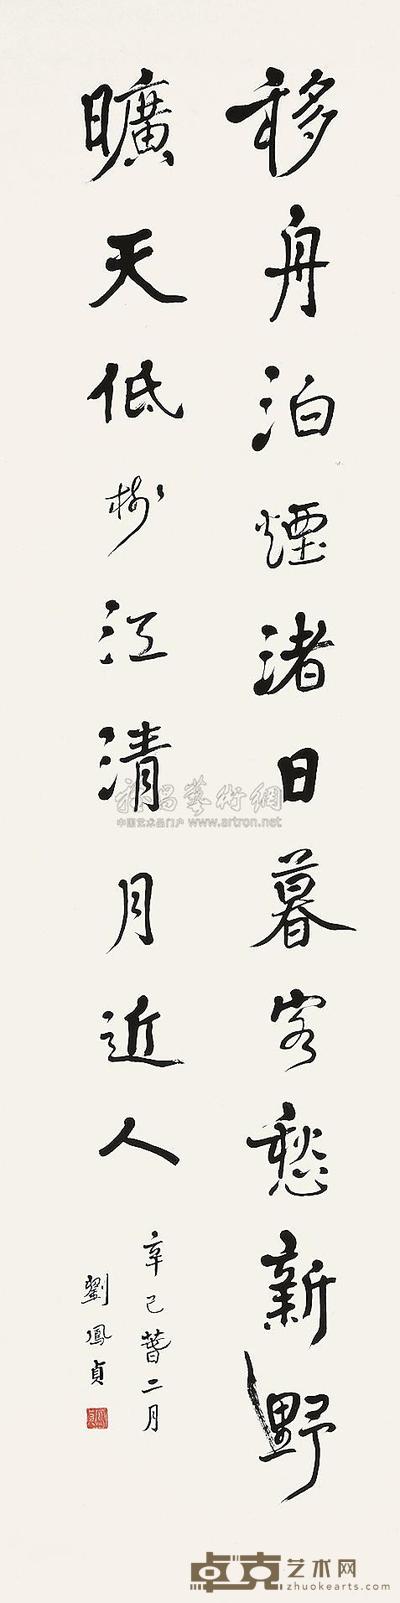 移舟泊煙渚日暮客愁新野
曠天低樹江清月近人
辛巳萅二月
劉鳳貞
雅昌藝術網
中国艺术品门户 www.artron.net
卓克艺术网
zhuokearts.com